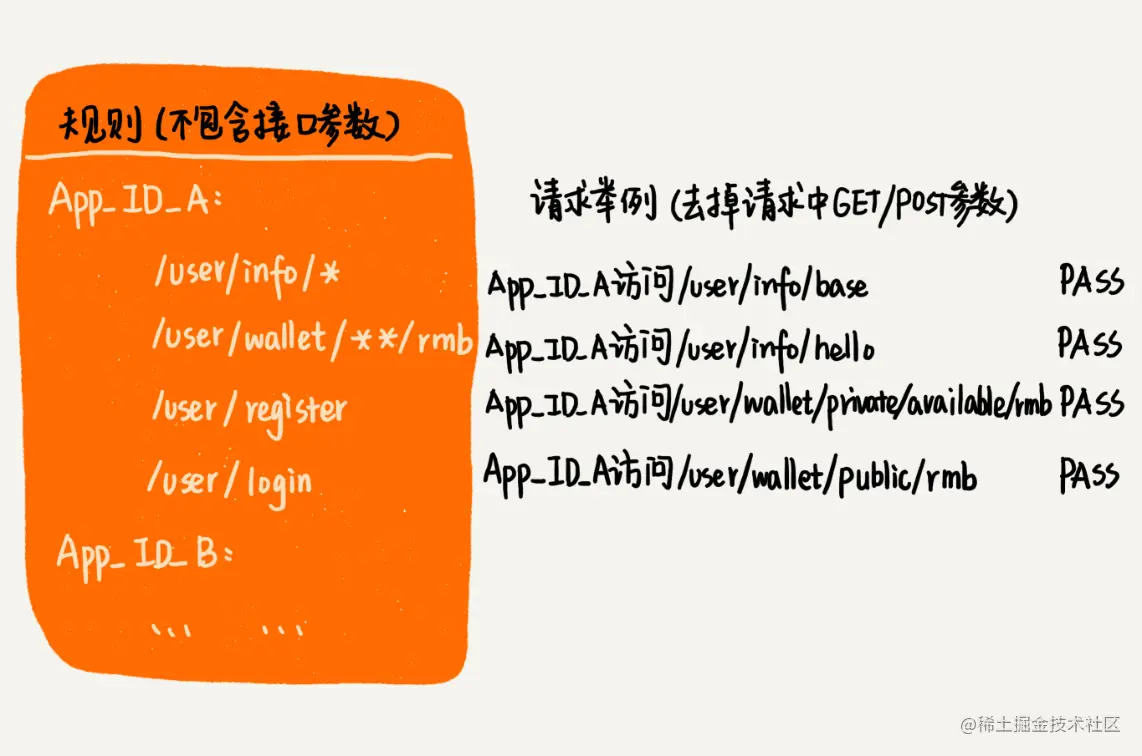 规则(不包含接口参数)
App_ID_A:
/user/info/*
/user/wallet/**/rmb
/user/register
/user/login
App_ID_B:
... ...
请求举例(去掉请求中GET/POST参数)
App_ID_A访问/user/info/base PASS
App_ID_A访问/user/info/hello PASS
App_ID_A访问/user/wallet/private/available/rmb PASS
App_ID_A访问/user/wallet/public/rmb PASS
@稀土掘金技术社区